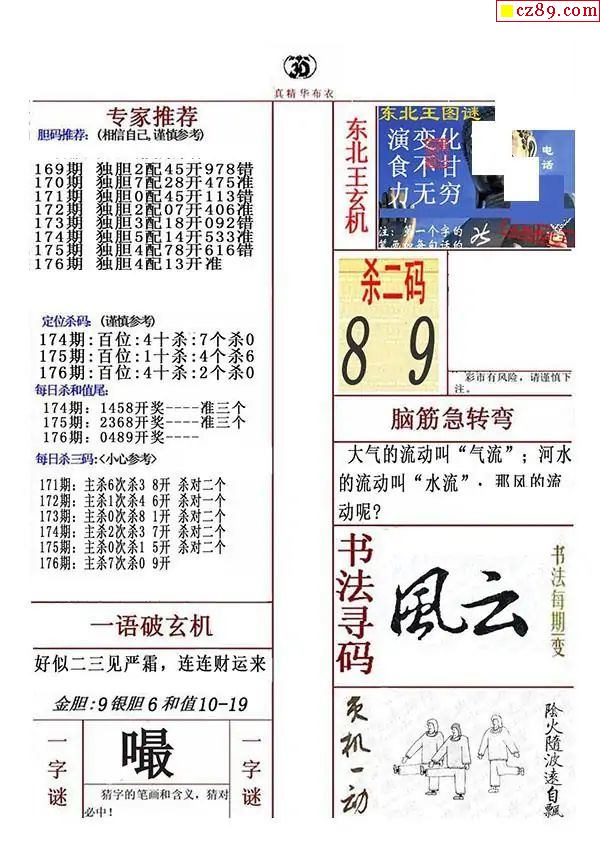 cz89.com
3D
真精华布衣
专家推荐
胆码推荐：(相信自己,谨慎参考)
169期 独胆2配45开978错
170期 独胆7配28开475准
171期 独胆0配45开113错
172期 独胆2配07开406准
173期 独胆3配18开092错
174期 独胆5配14开533准
175期 独胆4配78开616错
176期 独胆4配13开准
定位杀码：(谨慎参考)
174期:百位:4十杀:7个杀0
175期:百位:1十杀:4个杀6
176期:百位:4十杀:2个杀0
每日杀和值尾:
174期: 1458开奖----准三个
175期: 2368开奖----准三个
176期: 0489开奖----
每日杀三码:<小心参考>
171期: 主杀6次杀3 8开 杀对二个
172期: 主杀1次杀4 6开 杀对一个
173期: 主杀0次杀8 1开 杀对二个
174期: 主杀2次杀3 7开 杀对二个
175期: 主杀0次杀1 5开 杀对二个
176期: 主杀7次杀0 9开
一语破玄机
好似二三见严霜，连连财运来
金胆:9银胆6和值10-19
一字谜
嘬
猜字的笔画和含义，猜对
必中！
一字谜
东北王玄机
东北王图谜
演变化
食不甘
力无穷
电话
注：第一个字的
杀二码
8 9
彩市有风险，请谨慎下
注。
脑筋急转弯
大气的流动叫“气流”；河水
的流动叫“水流”，那风的流
动呢?
书法寻码
風云
书法每期变
玄机一动
陰火隨波遠自飄